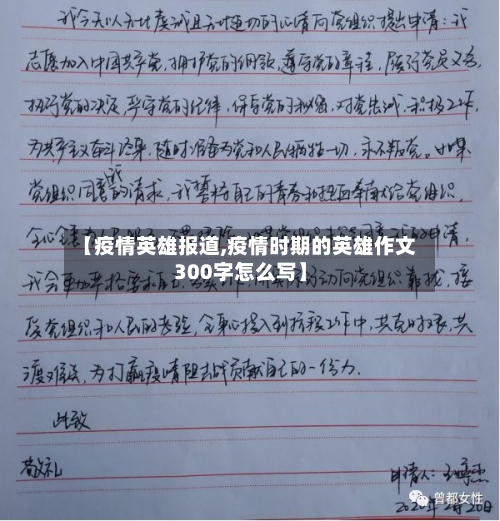 我今天以无比虔诚且无比迫切的心情向党组织提出申请：我
志愿加入中国共产党，拥护党的纲领，遵守党的章程，履行党员义务，
执行党的决定，严守党的纪律，保守党的秘密，对党忠诚，积极工作，
为共产主义奋斗终身，随时准备为党和人民牺牲一切，永不叛党。如果
党组织同意我的请求，我誓将自己的青春和热血奉献给党组织，
全心全意为人民
【疫情英雄报道,疫情时期的英雄作文
300字怎么写】
的申请，
我会更加严格要求自己
向党组织靠拢，接
受党组织和人民的考验，全身心投入到抗疫工作中，共克时艰，共
渡难关，为打赢疫情阻击战贡献自己的一份力。
此致
敬礼
申请人：王
曾都女性
2020年2月20日